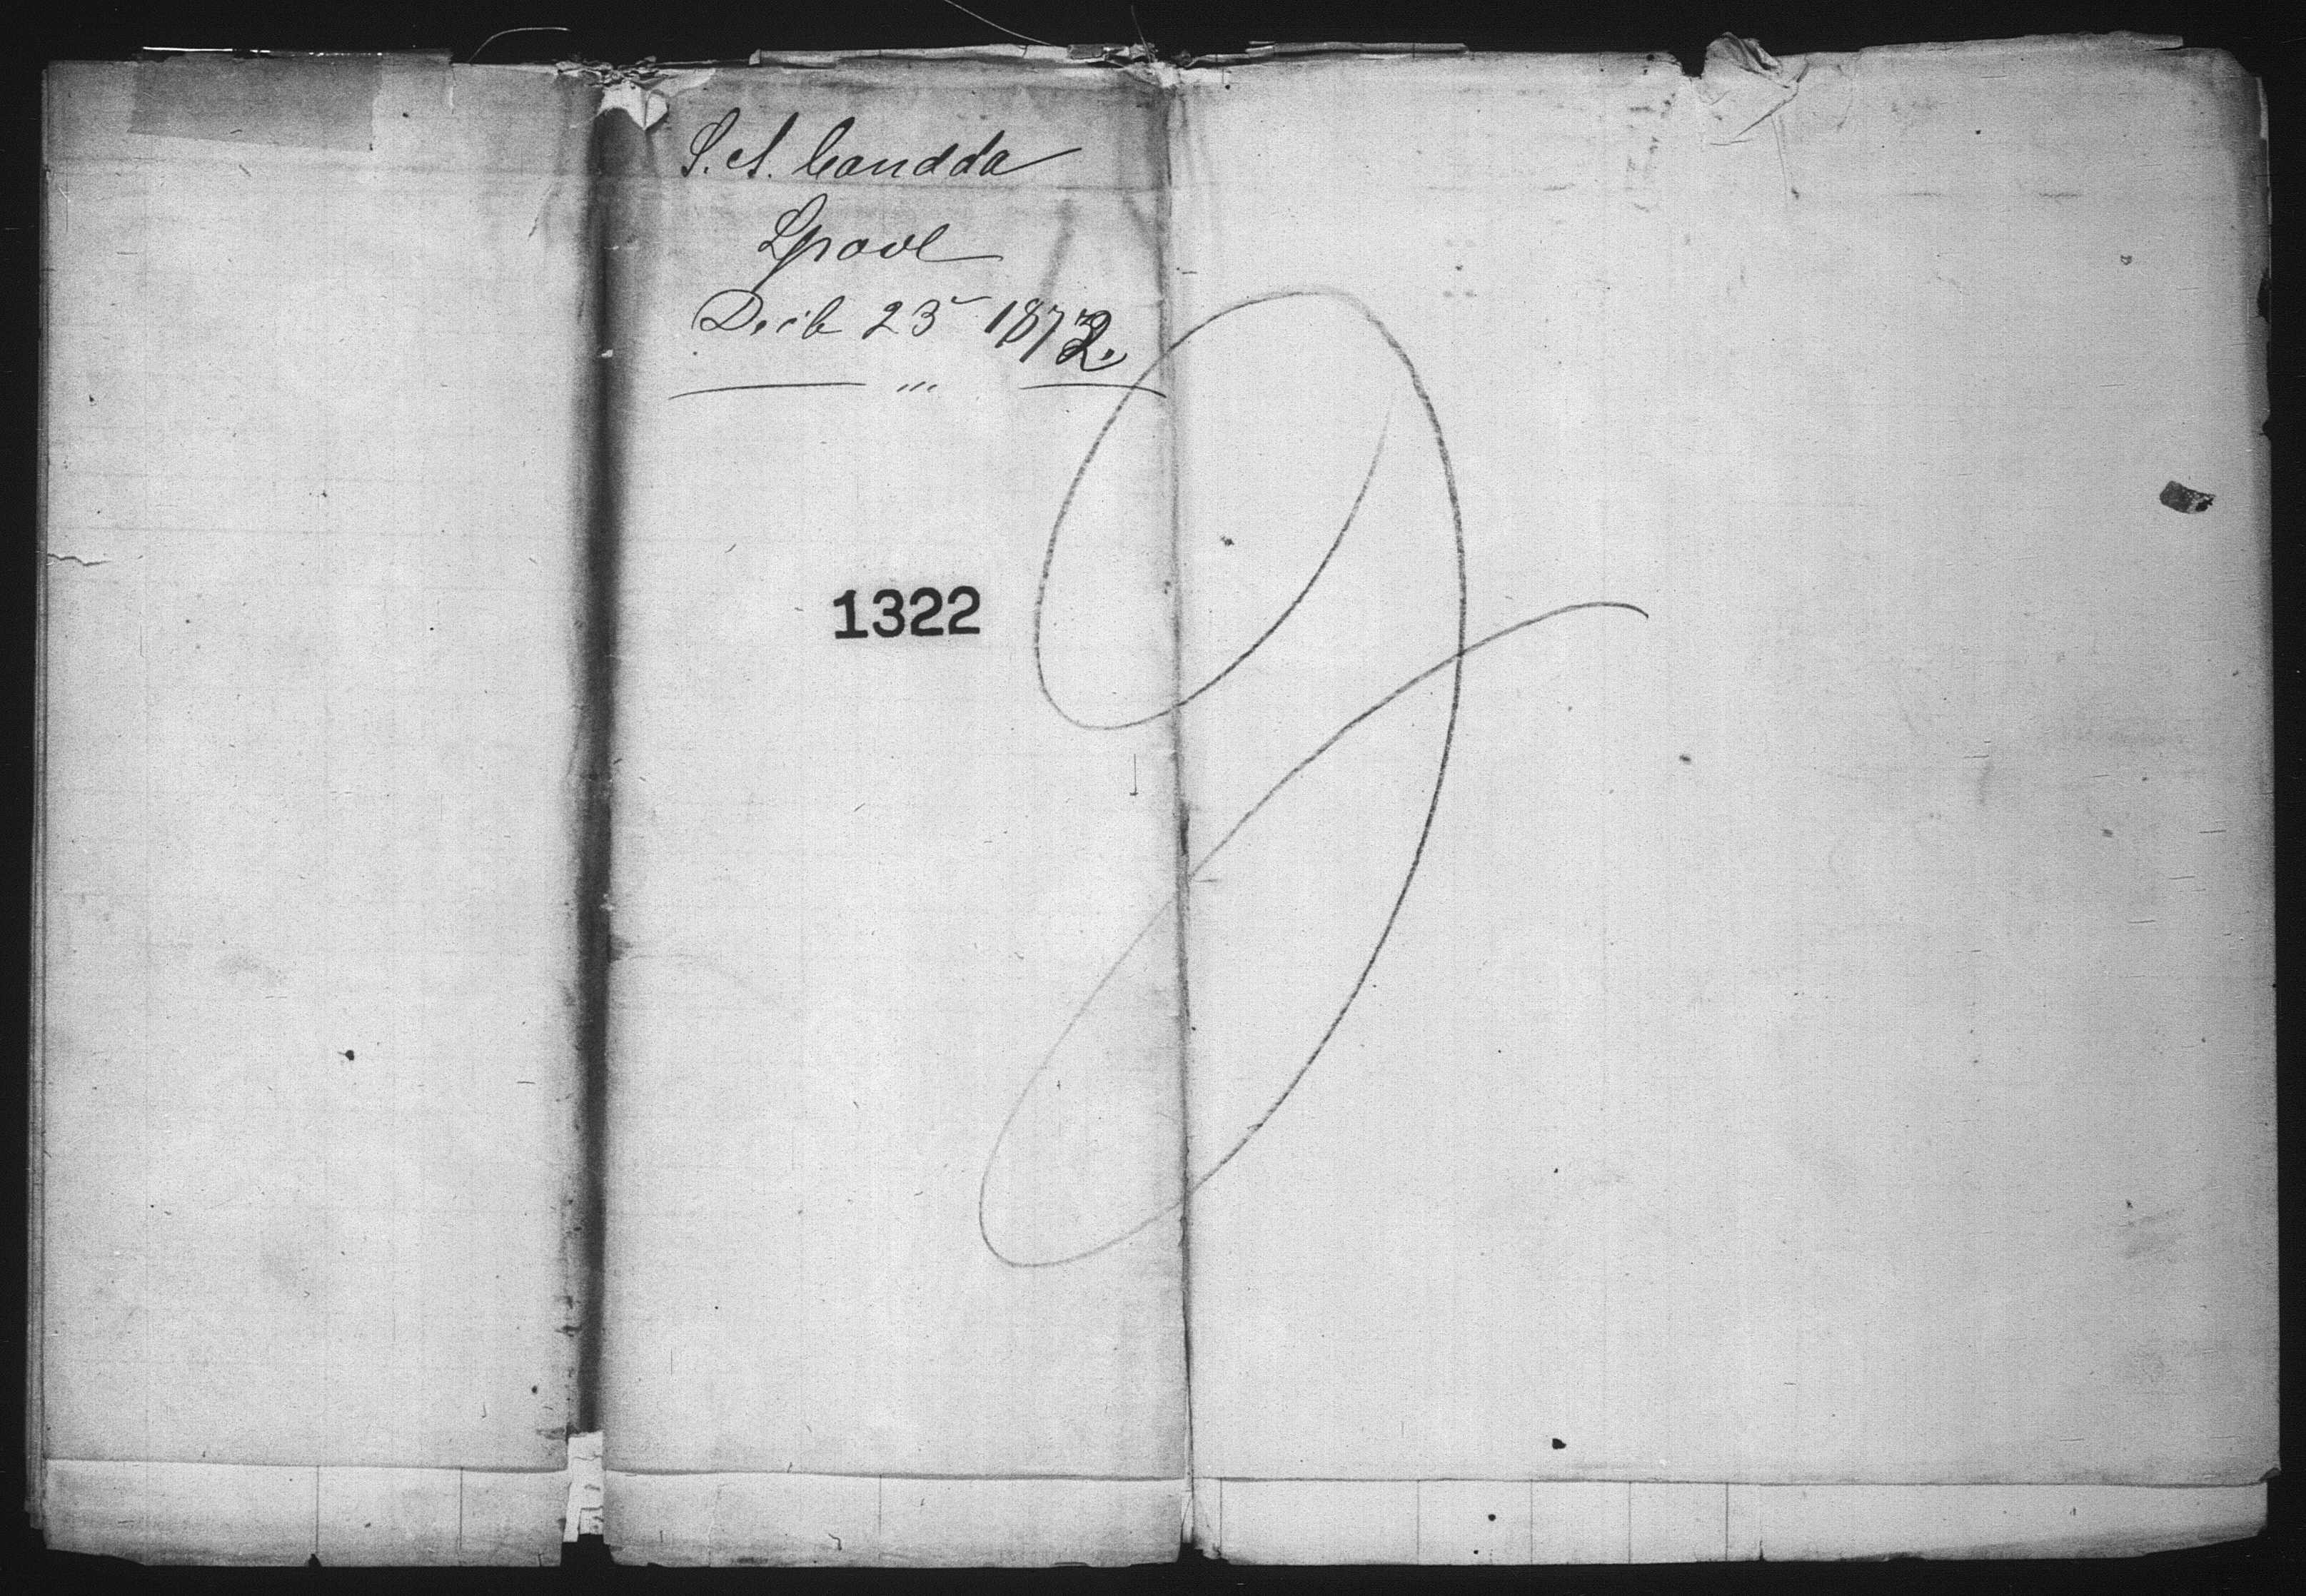 S.S. Canada
Lpool
Decb 23 1872.
1322